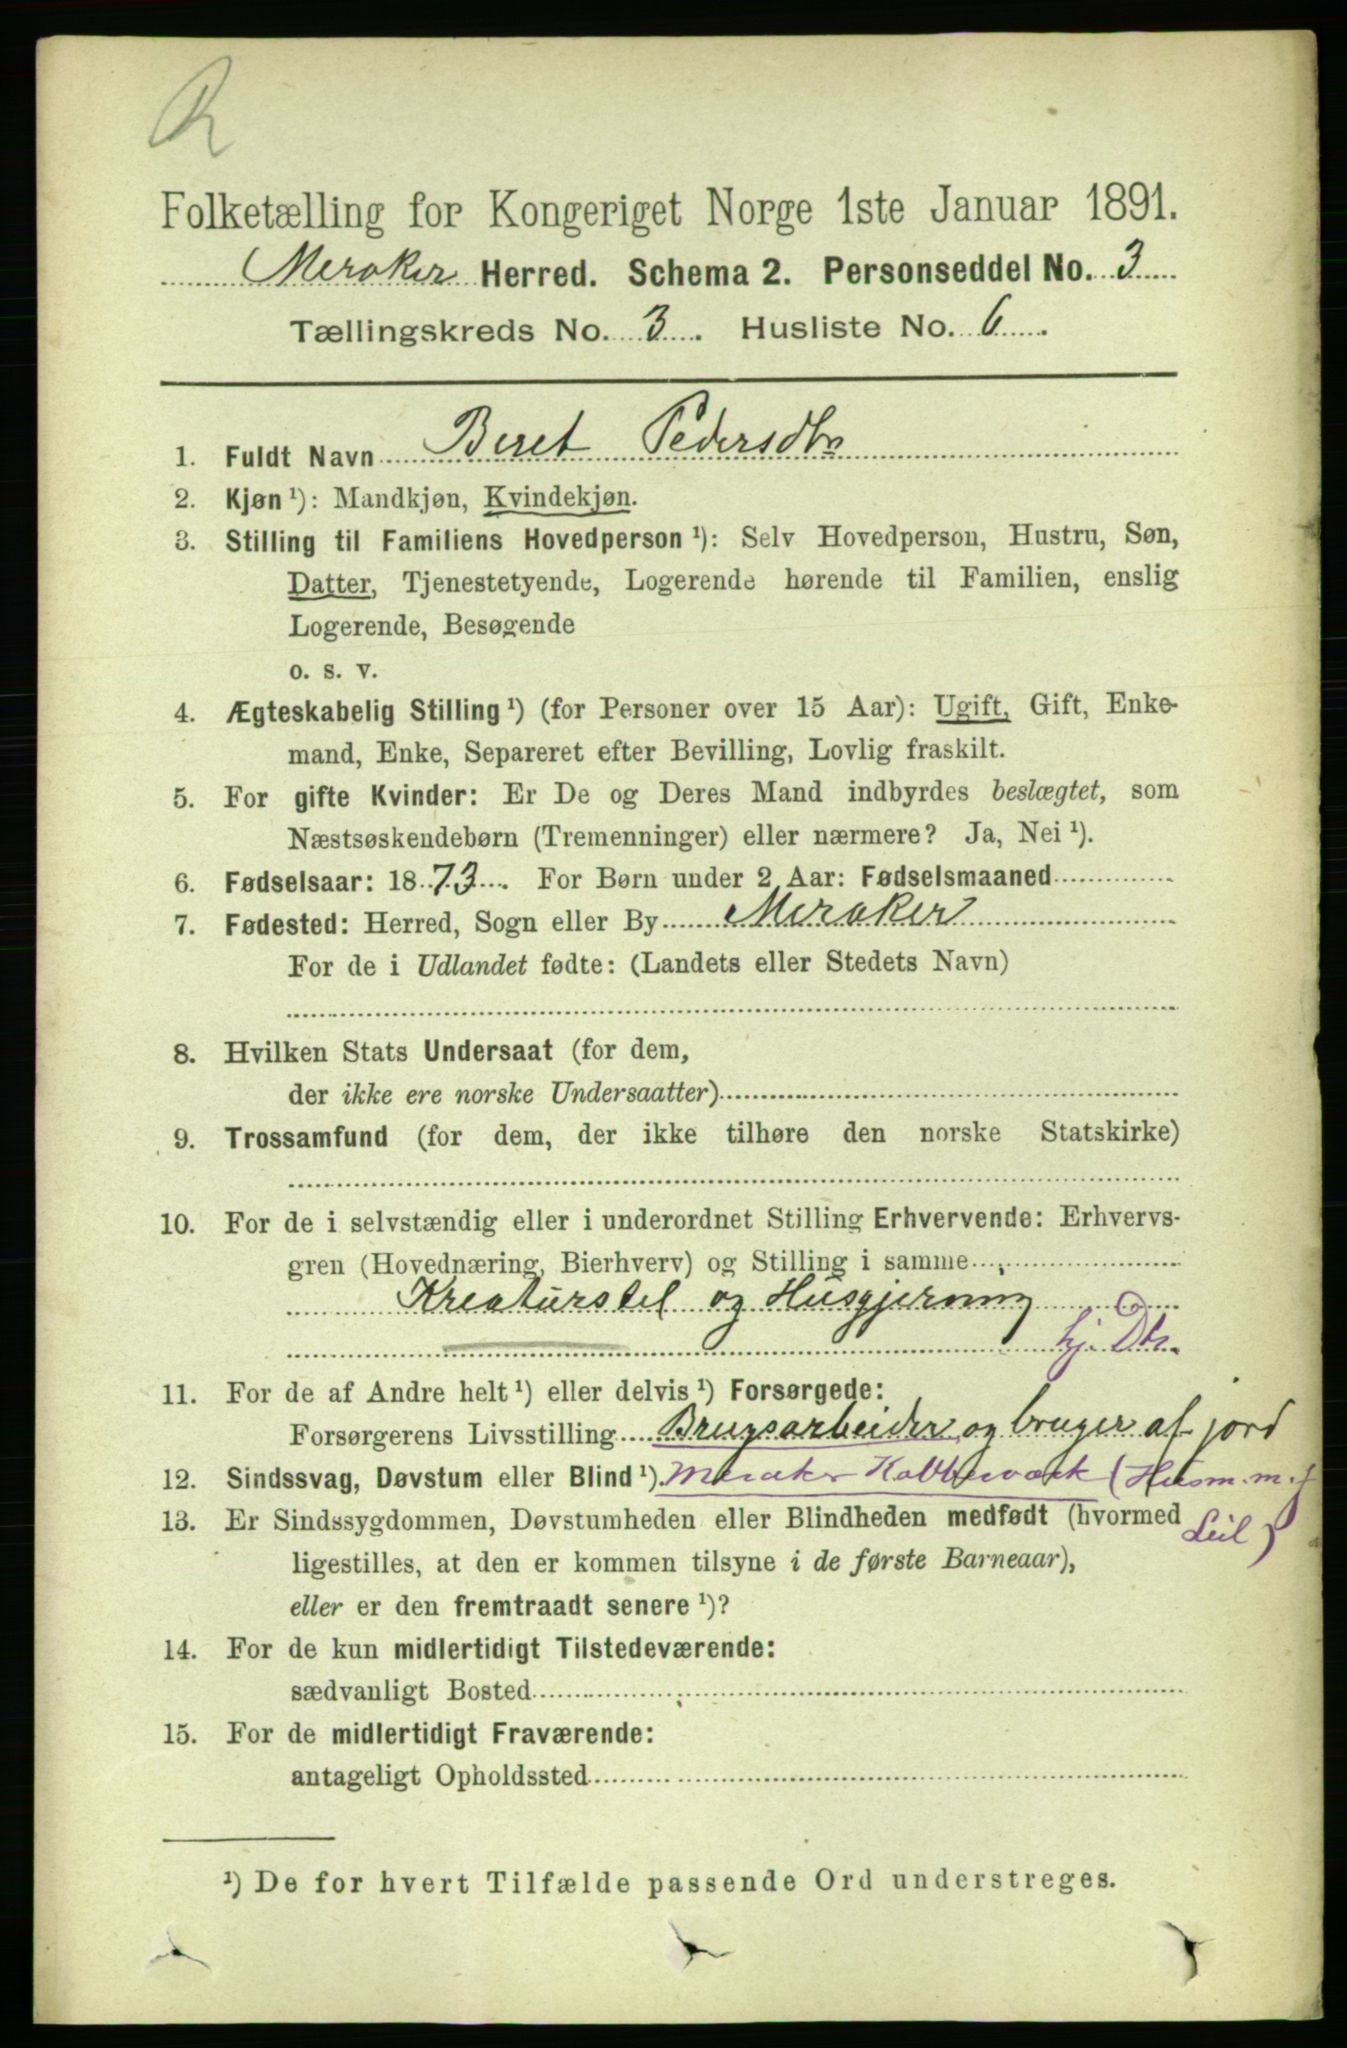 R
Folketælling for Kongeriget Norge 1ste Januar 1891.
Meraker Herred. Schema 2. Personseddel No. 3
Tællingskreds No. 3. Husliste No. 6
1. Fuldt Navn Beret Pedersdtr
2. Kjøn ¹): Mandkjøn, Kvindekjøn.
3. Stilling til Familiens Hovedperson ¹): Selv Hovedperson, Hustru, Søn,
Datter, Tjenestetyende, Logerende hørende til Familien, enslig
Logerende, Besøgende
o. s. v.
4. Ægteskabelig Stilling ¹) (for Personer over 15 Aar): Ugift, Gift, Enke-
mand, Enke, Separeret efter Bevilling, Lovlig fraskilt.
5. For gifte Kvinder: Er De og Deres Mand indbyrdes beslægtet, som
Næstsøskendebørn (Tremenninger) eller nærmere? Ja, Nei ¹).
6. Fødselsaar: 1873. For Børn under 2 Aar: Fødselsmaaned
7. Fødested: Herred, Sogn eller By Meraker
For de i Udlandet fødte: (Landets eller Stedets Navn)
8. Hvilken Stats Undersaat (for dem,
der ikke ere norske Undersaatter)
9. Trossamfund (for dem, der ikke tilhøre den norske Statskirke)
10. For de i selvstændig eller i underordnet Stilling Erhvervende: Erhvervs-
gren (Hovednæring, Bierhverv) og Stilling i samme
Kreaturstel og Husgjerning
hj. Dtr.
11. For de af Andre helt ¹) eller delvis ¹) Forsørgede:
Forsørgerens Livsstilling Brugsarbeider og bruger af jord
12. Sindssvag, Døvstum eller Blind ¹). Meraker Kobberværk (Husm. m. j
13. Er Sindssygdommen, Døvstumheden eller Blindheden medfødt (hvormed Leil)
ligestilles, at den er kommen tilsyne i de første Barneaar),
eller er den fremtraadt senere ¹)?
14. For de kun midlertidigt Tilstedeværende:
sædvanligt Bosted
15. For de midlertidigt Fraværende:
antageligt Opholdssted
¹) De for hvert Tilfælde passende Ord understreges.